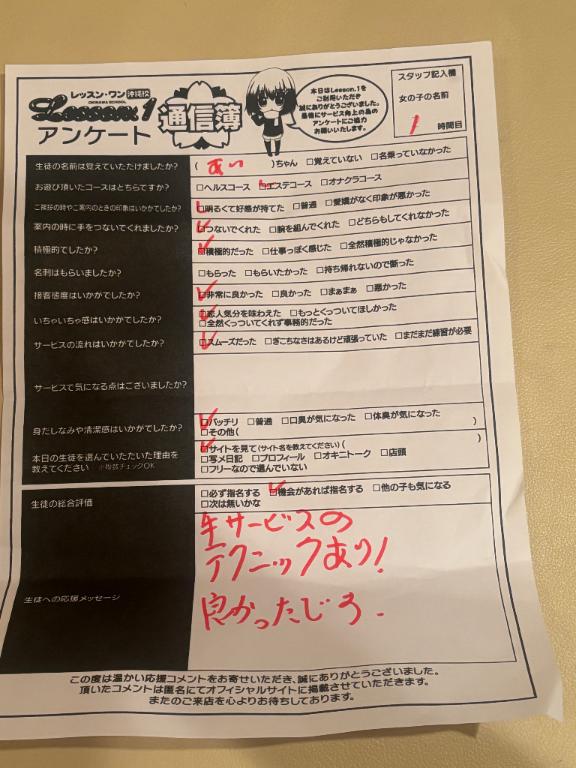 レッスン・ワン 沖縄校
Lesson.1
OKINAWA SCHOOL
アンケート
通信簿
本日はLesson.1を
ご利用いただき
誠にありがとうございました。
最後にサービス向上の為の
アンケートにご協力
お願いいたします。
スタッフ記入欄
女の子の名前
1 時間目
生徒の名前は覚えていただけましたか? ( あい )ちゃん □覚えていない □名乗っていなかった
お遊び頂いたコースはどちらですか? □ヘルスコース □エステコース □オナクラコース
ご挨拶の時やご案内のときの印象はいかがでしたか? □明るくて好感が持てた □普通 □愛嬌がなく印象が悪かった
案内の時に手をつないてくれましたか? □つないでくれた □腕を組んでくれた □どちらもしてくれなかった
積極的でしたか? □積極的だった □仕事っぽく感じた □全然積極的じゃなかった
名刺はもらいましたか? □もらった □もらいたかった □持ち帰れないので断った
接客態度はいかがでしたか? □非常に良かった □良かった □まぁまぁ □悪かった
いちゃいちゃ感はいかがでしたか? □恋人気分を味わえた □もっとくっついてほしかった
□全然くっついてくれず事務的だった
サービスの流れはいかがでしたか? □スムーズだった □ぎこちなさはあるけど頑張っていた □まだまだ練習が必要
サービスで気になる点はございましたか?
身だしなみや清潔感はいかがでしたか? □バッチリ □普通 □口臭が気になった □体臭が気になった
□その他( )
本日の生徒を選んでいただいた理由を
教えてください ※複数チェックOK
□サイトを見て(サイト名を教えてください)( )
□写メ日記 □プロフィール □オキニトーク □店頭
□フリーなので選んでいない
生徒の総合評価 □必ず指名する □機会があれば指名する □他の子も気になる
□次は無いかな
生サービスの
テクニックあり!
生徒への応援メッセージ
良かったじろ.
この度は温かい応援コメントをお寄せいただき、誠にありがとうございました。
頂いたコメントは匿名にてオフィシャルサイトに掲載させていただきます。
またのご来店を心よりお待ちしております。